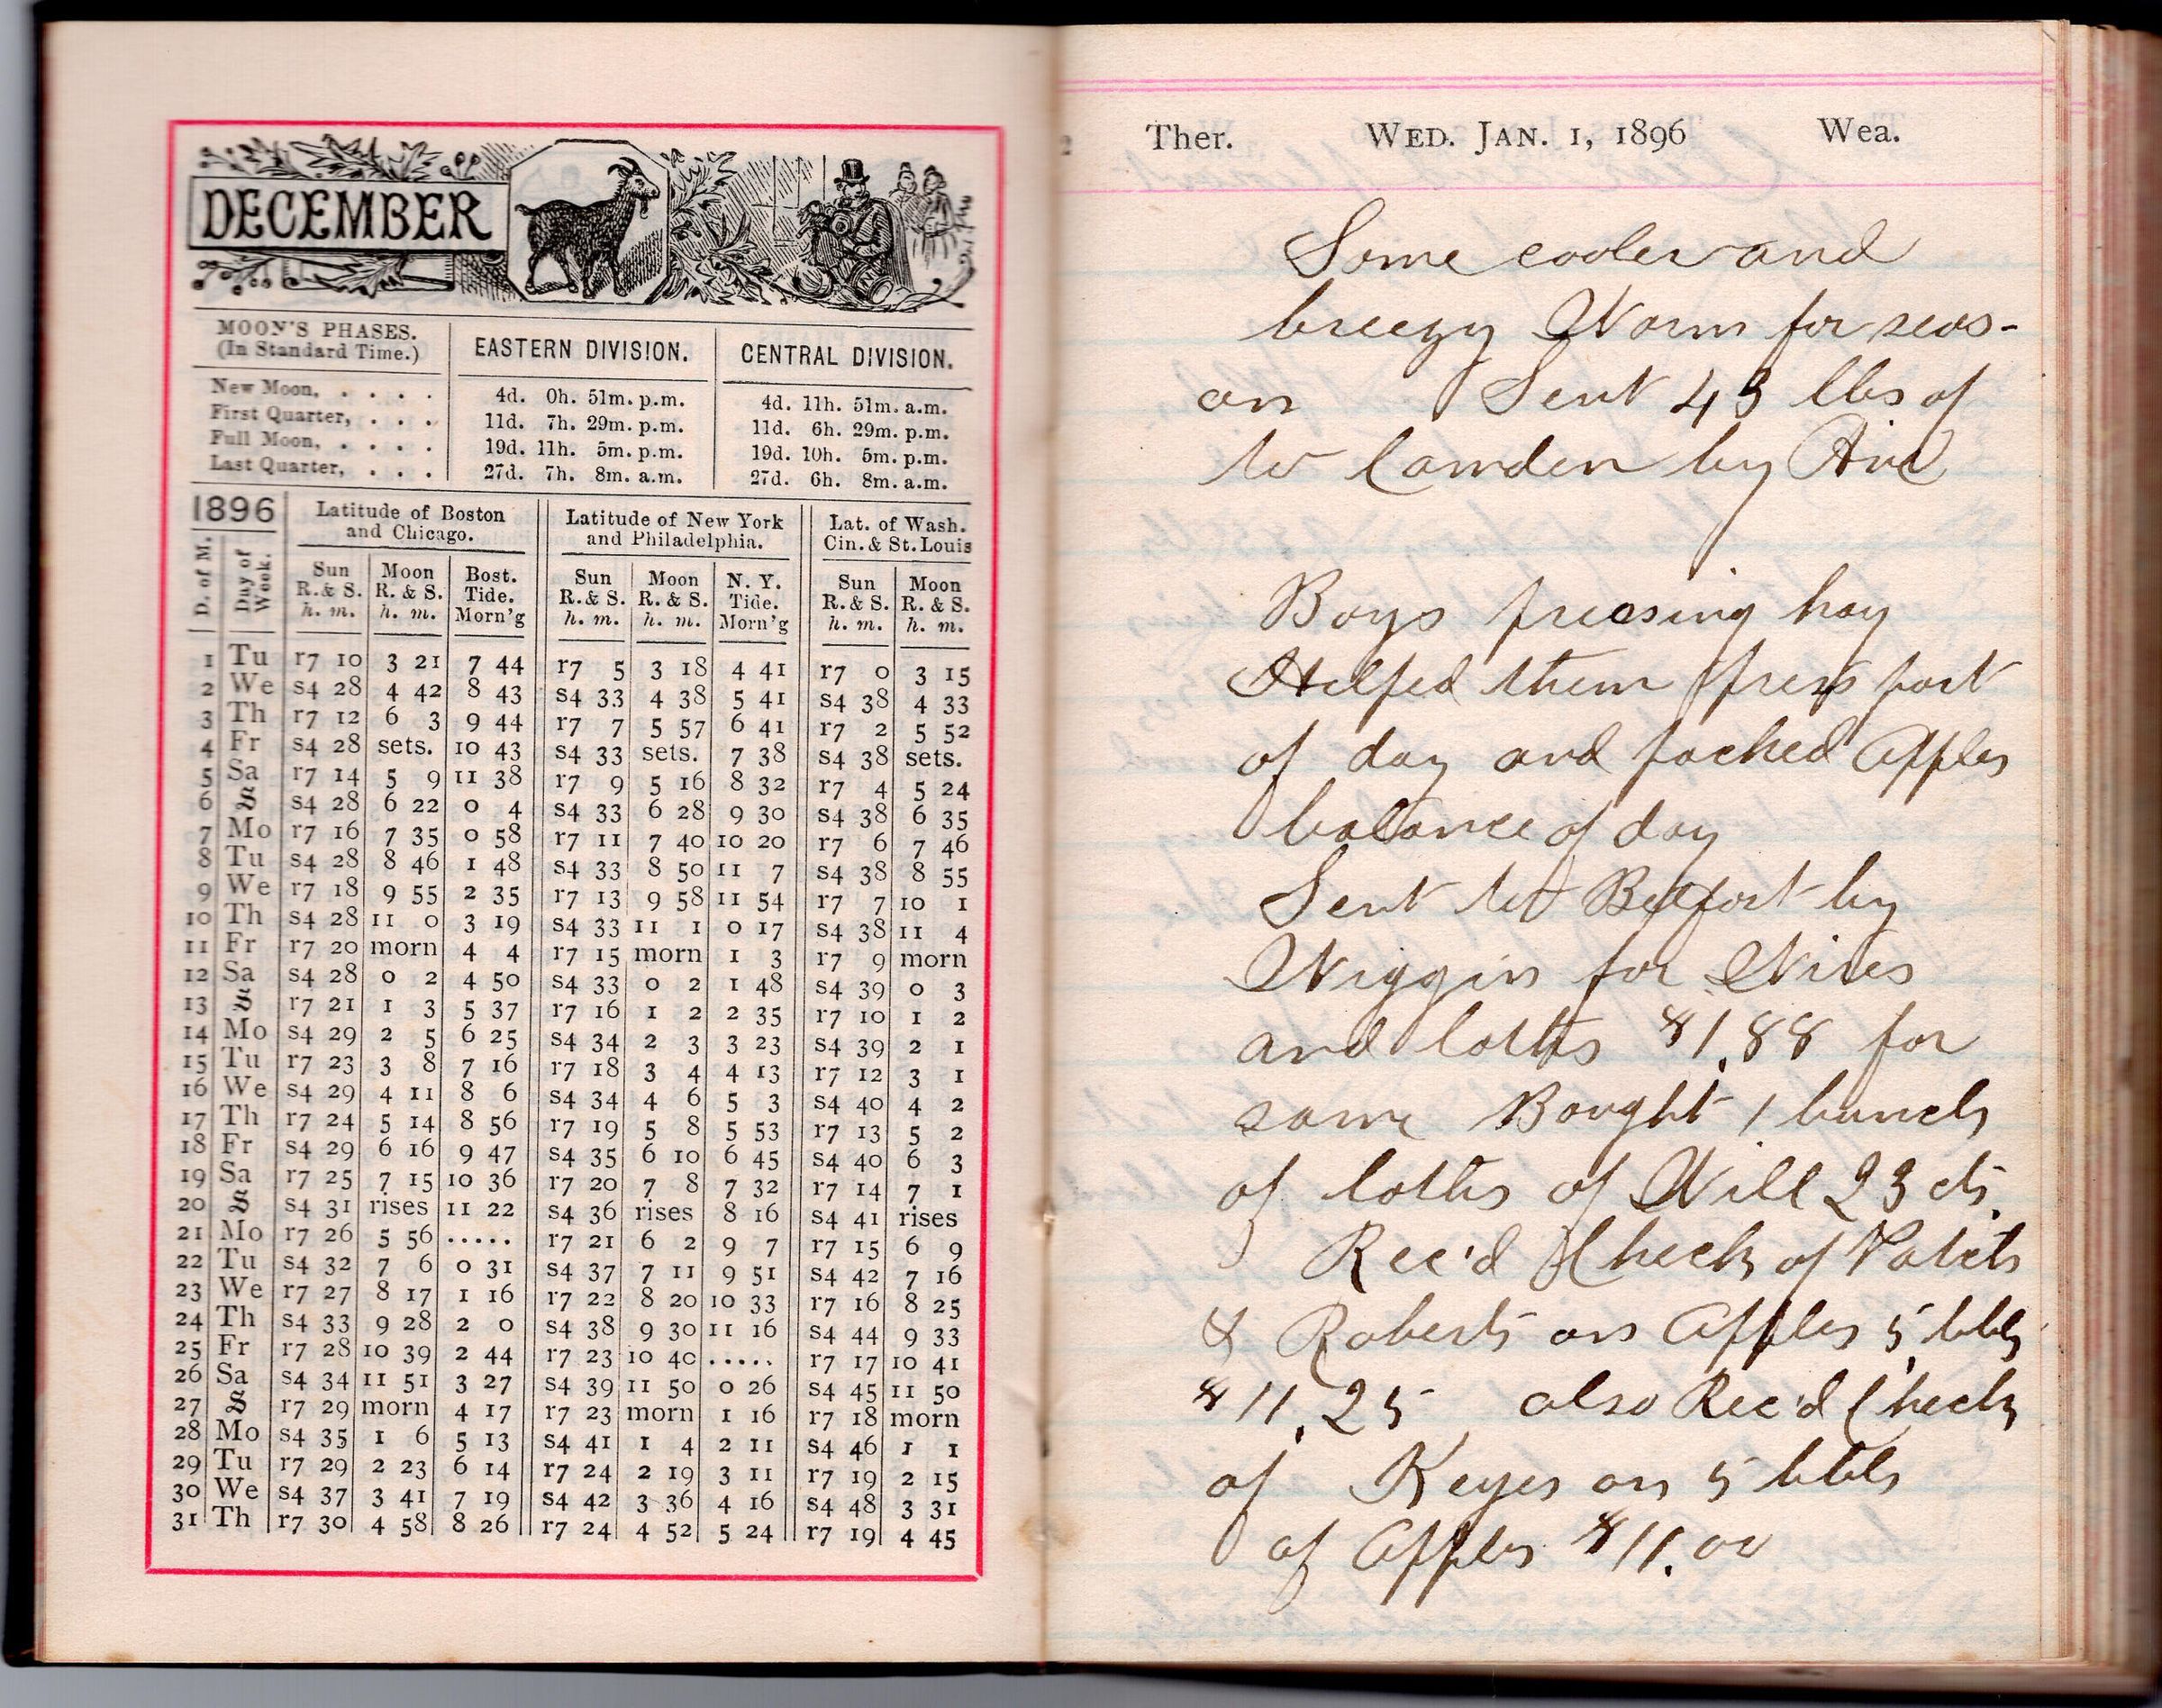 DECEMBER
MOON'S PHASES. EASTERN DIVISION. CENTRAL DIVISION.
(In Standard Time.)
New Moon, . . . . 4d. 0h. 51m. p.m. 4d. 11h. 51m. a.m.
First Quarter, . . . 11d. 7h. 29m. p.m. 11d. 6h. 29m. p.m.
Full Moon, . . . . 19d. 11h. 5m. p.m. 19d. 10h. 5m. p.m.
Last Quarter, . . . 27d. 7h. 8m. a.m. 27d. 6h. 8m. a.m.
1896 Latitude of Boston Latitude of New York Lat. of Wash.
and Chicago. and Philadelphia. Cin. & St. Louis
D. of M. Day of Week. Sun Moon Bost. Sun Moon N. Y. Sun Moon
R. & S. R. & S. Tide. R. & S. R. & S. Tide. R. & S. R. & S.
h. m. h. m. Morn'g h. m. h. m. Morn'g h. m. h. m.
1 Tu r7 10 3 21 7 44 r7 5 3 18 4 41 r7 0 3 15
2 We s4 28 4 42 8 43 s4 33 4 38 5 41 s4 38 4 33
3 Th r7 12 6 3 9 44 r7 7 5 57 6 41 r7 2 5 52
4 Fr s4 28 sets. 10 43 s4 33 sets. 7 38 s4 38 sets.
5 Sa r7 14 5 9 11 38 r7 9 5 16 8 32 r7 4 5 24
6 S s4 28 6 22 0 4 s4 33 6 28 9 30 s4 38 6 35
7 Mo r7 16 7 35 0 58 r7 11 7 40 10 20 r7 6 7 46
8 Tu s4 28 8 46 1 48 s4 33 8 50 11 7 s4 38 8 55
9 We r7 18 9 55 2 35 r7 13 9 58 11 54 r7 7 10 1
10 Th s4 28 11 0 3 19 s4 33 11 1 0 17 s4 38 11 4
11 Fr r7 20 morn 4 4 r7 15 morn 1 3 r7 9 morn
12 Sa s4 28 0 2 4 50 s4 33 0 2 1 48 s4 39 0 3
13 S r7 21 1 3 5 37 r7 16 1 2 2 35 r7 10 1 2
14 Mo s4 29 2 5 6 25 s4 34 2 3 3 23 s4 39 2 1
15 Tu r7 23 3 8 7 16 r7 18 3 4 4 13 r7 12 3 1
16 We s4 29 4 11 8 6 s4 34 4 6 5 3 s4 40 4 2
17 Th r7 24 5 14 8 56 r7 19 5 8 5 53 r7 13 5 2
18 Fr s4 29 6 16 9 47 s4 35 6 10 6 45 s4 40 6 3
19 Sa r7 25 7 15 10 36 r7 20 7 8 7 32 r7 14 7 1
20 S s4 31 rises 11 22 s4 36 rises 8 16 s4 41 rises
21 Mo r7 26 5 56 ..... r7 21 6 2 9 7 r7 15 6 9
22 Tu s4 32 7 6 0 31 s4 37 7 11 9 51 s4 42 7 16
23 We r7 27 8 17 1 16 r7 22 8 20 10 33 r7 16 8 25
24 Th s4 33 9 28 2 0 s4 38 9 30 11 16 s4 44 9 33
25 Fr r7 28 10 39 2 44 r7 23 10 40 ..... r7 17 10 41
26 Sa s4 34 11 51 3 27 s4 39 11 50 0 26 s4 45 11 50
27 S r7 29 morn 4 17 r7 23 morn 1 16 r7 18 morn
28 Mo s4 35 1 6 5 13 s4 41 1 4 2 11 s4 46 1 1
29 Tu r7 29 2 23 6 14 r7 24 2 19 3 11 r7 19 2 15
30 We s4 37 3 41 7 19 s4 42 3 36 4 16 s4 48 3 31
31 Th r7 30 4 58 8 26 r7 24 4 52 5 24 r7 19 4 45
Ther. WED. JAN. 1, 1896 Wea.
Some cooler and
breezy Warm for seas-
on Sent 43 lbs of
to Camden by
Boys pressing hay
Helped them press part
of day and packed Apples
balance of day
Sent to Belfast by
Wiggin for Wires
and laths $1.88 for
same Bought 1 bunch
of laths of Will 23 cts.
Rec'd Check of Patch
& Roberts on Apples 5 bbls
$11.25 also Rec'd Check
of Keyes on 5 bbls
of Apples $11.00